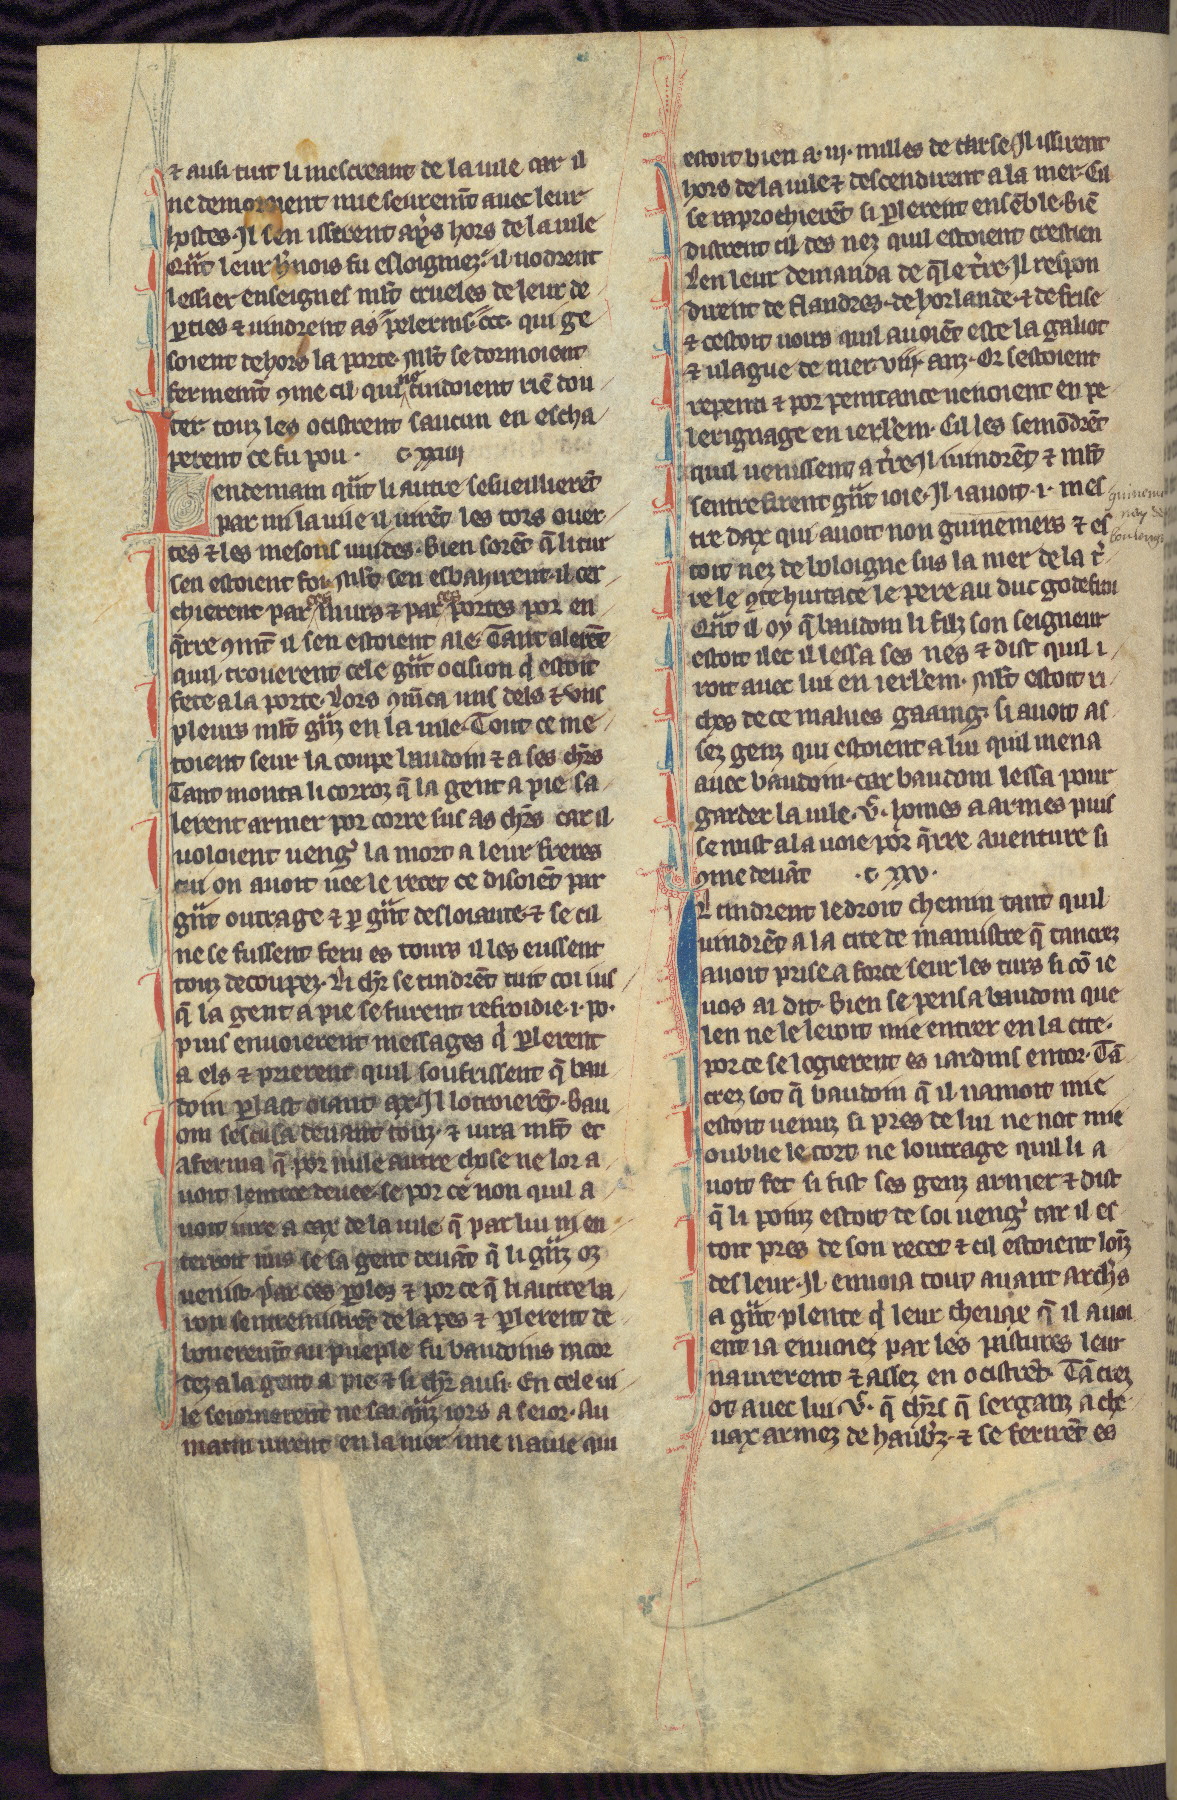 ⁊ ausi tuit li mescreant de la uile. car il
ne demoroient mie seurem̄t auec leur
hostes. Il sen issirent ap̀s hors de la uile
Q̄nt leur h̾nois fu esloigniez. il uodrent
lessier enseignes ml̄t crueles de leur de
ꝑties ⁊ uindrent as pelerins .ccc. qui ge
soient dehors la porte. ml̄t se dormoient
fermem̄t ꝯme cil qui ne cuidoient riē dou
ter. touz les ocistrent saucun en escha
perent ce fu pou. c. xxiiij
Lendemain q̄nt li autre sesueillierēt
par mi la uile il uirēt les tors ouer
tes ⁊ les mesons uuides. Bien sorēt q̄ li tur
sen estoient foi. ml̄t sen esbahirent. il cer
chierent par ces murs ⁊ par ces portes por en
q̄rre ꝯm̄t il sen estoient ale. Tant alerēt
quil trouerent cele g̃nt ocision q̇ estoit
fete a la porte. Lors ꝯm̄ca uns dels ⁊ uns
pleurs ml̄t g̃nz en la uile. Tout ce me
toient seur la coupe baudoin ⁊ a ses ch̾rs
Tant monta li corroz q̄ la gent a pie sa
lerent armer por corre sus as ch̾rs car il
uoloient ueng̾ la mort a leur freres
cui on auoit uee le recet ce disoiēt par
g̃nt outrage ⁊ ꝑ g̃nt desloiaute. ⁊ se cil
ne se fussent feru es tours il les eussent
touz decoupez. Li ch̾r se tindrēt tuit coi ius
q̄ la gent a pie se furent refroidie .i. po.
puis enuoierent messages q̇ ꝑlerent
a els ⁊ prierent quil soufrissent q̄ bau
doin ꝑlast oiant ax. Il lotroierēt. Bau
oin sescusa deuant touz. ⁊ iura ml̄t et
aferma q̄ por nule autre chose ne lor a
uoit lentree deuee. se por ce non quil a
uoit iure a cax de la uile q̄ par lui ni en
terroit nus se sa gent deuāt q̄ li g̃nz oz
uenist. par ces ꝑoles ⁊ por ce q̄ li autre ba
ron sentremistrēt de la pes ⁊ ꝑlerent de
bouerem̄t au pueple fu baudoins racor
dez a la gent a pie ⁊ si ch̾r ausi. En cele ui
le seiornerent ne sai q̄nz iors a seior. Au
matin uirent en la mer une nauie qui
estoit bien a .iij. milles de tarse. Il issirent
hors de la uile ⁊ descendirent a la mer. Cil
se raprochierēt si ꝑlerent ensēble. Biē
distrent cil des nez quil estoient crestien
Len leur demanda de q̄le t̾re. Il respon
dirent de flandres. de horlande. ⁊ de frise
⁊ cestoit uoirs quil auoiēt este la galiot
⁊ ulague de mer .viij. anz. Or sestoient
repenti ⁊ por penitance uenoient en pe
lerignage en ierl̄em. Cil les semōdrēt
quil uenissent a t̾re. Il uindrēt ⁊ ml̄t
sentrefirent g̃nt ioie. Il iauoit .i. mes
tre dax qui auoit non guinemers ⁊ es
toit nez de boloigne sus la mer de la t̾
re le ꝯte huitace le pere au duc godefroi
Q̄nt il oy q̄ baudoin li filz son seigneur
estoit ilec il lessa ses nes ⁊ dist quil i
roit auec lui en ierl̄em. ml̄t estoit ri
ches de ce malues gaaing. si auoit as
sez genz qui estoient a lui quil mena
auec baudoin. car baudoin lessa pour
garder la uile .vͨ. homes a armes puis
se mist a la uoie por q̄rre auenture si
ꝯme deuāt .c. xxv.
Il tindrent le droit chemin tant quil
uindrēt a la cite de mamistre q̄ tancrez
auoit prise a force seur les turs si cō ie
uos ai dit. Bien se pensa baudoin que
len ne le leiroit mie entrer en la cite.
por ce se logierent es iardins entor. Tā
crez sot q̄ baudoin q̄ il namoit mie
estoit uenuz si pres de lui ne not mie
oublie le tort ne loutrage quil li a
uoit fet si fist ses genz armer ⁊ dist
q̄ li poinz estoit de soi ueng̾ car il es
toit pres de son recet ⁊ cil estoient loīz
des leur. Il enuoia tout auant arch̾s
a g̃nt plente q̇ leur cheuax q̄ il auoi
ent ia enuoiez par les pastures leur
naurerent ⁊ assez en ocistrēt. Tācrez
ot auec lui .vͨ. q̄ ch̾rs q̄ serganz a che
uax armez de haub̾z. ⁊ se ferirēt es